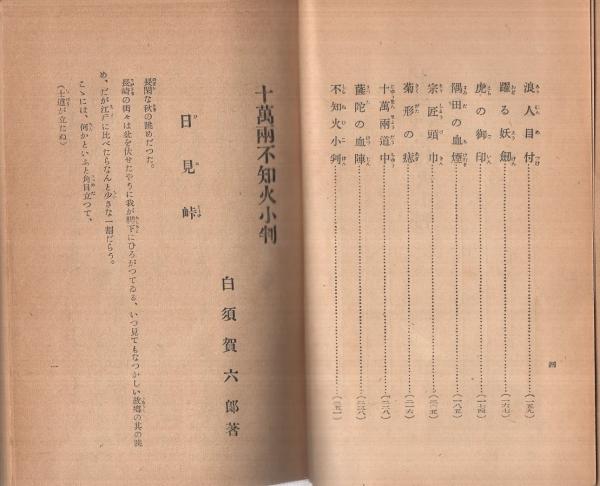 浪人目付……(一五九)
躍る妖劍……(一六七)
虎の御印……(一七四)
隅田の血煙……(一八五)
宗匠頭巾……(二〇五)
菊形の痣……(二一六)
十萬兩道中……(二二八)
薩陀の血陣……(二三八)
不知火小判……(二五一)
四
十萬兩不知火小判
白須賀六郎著
日見峠
長閑な秋の眺めだつた。
長崎の街々は甍を伏せたやうに我が脚下にひろがつてゐる、いつ見てもなつかしい故鄕の其の眺
め、だが江戸に比べたらなんと少さな一劃だらう。
こゝには、何かといふと角目立つて、
(士道が立たぬ)
一